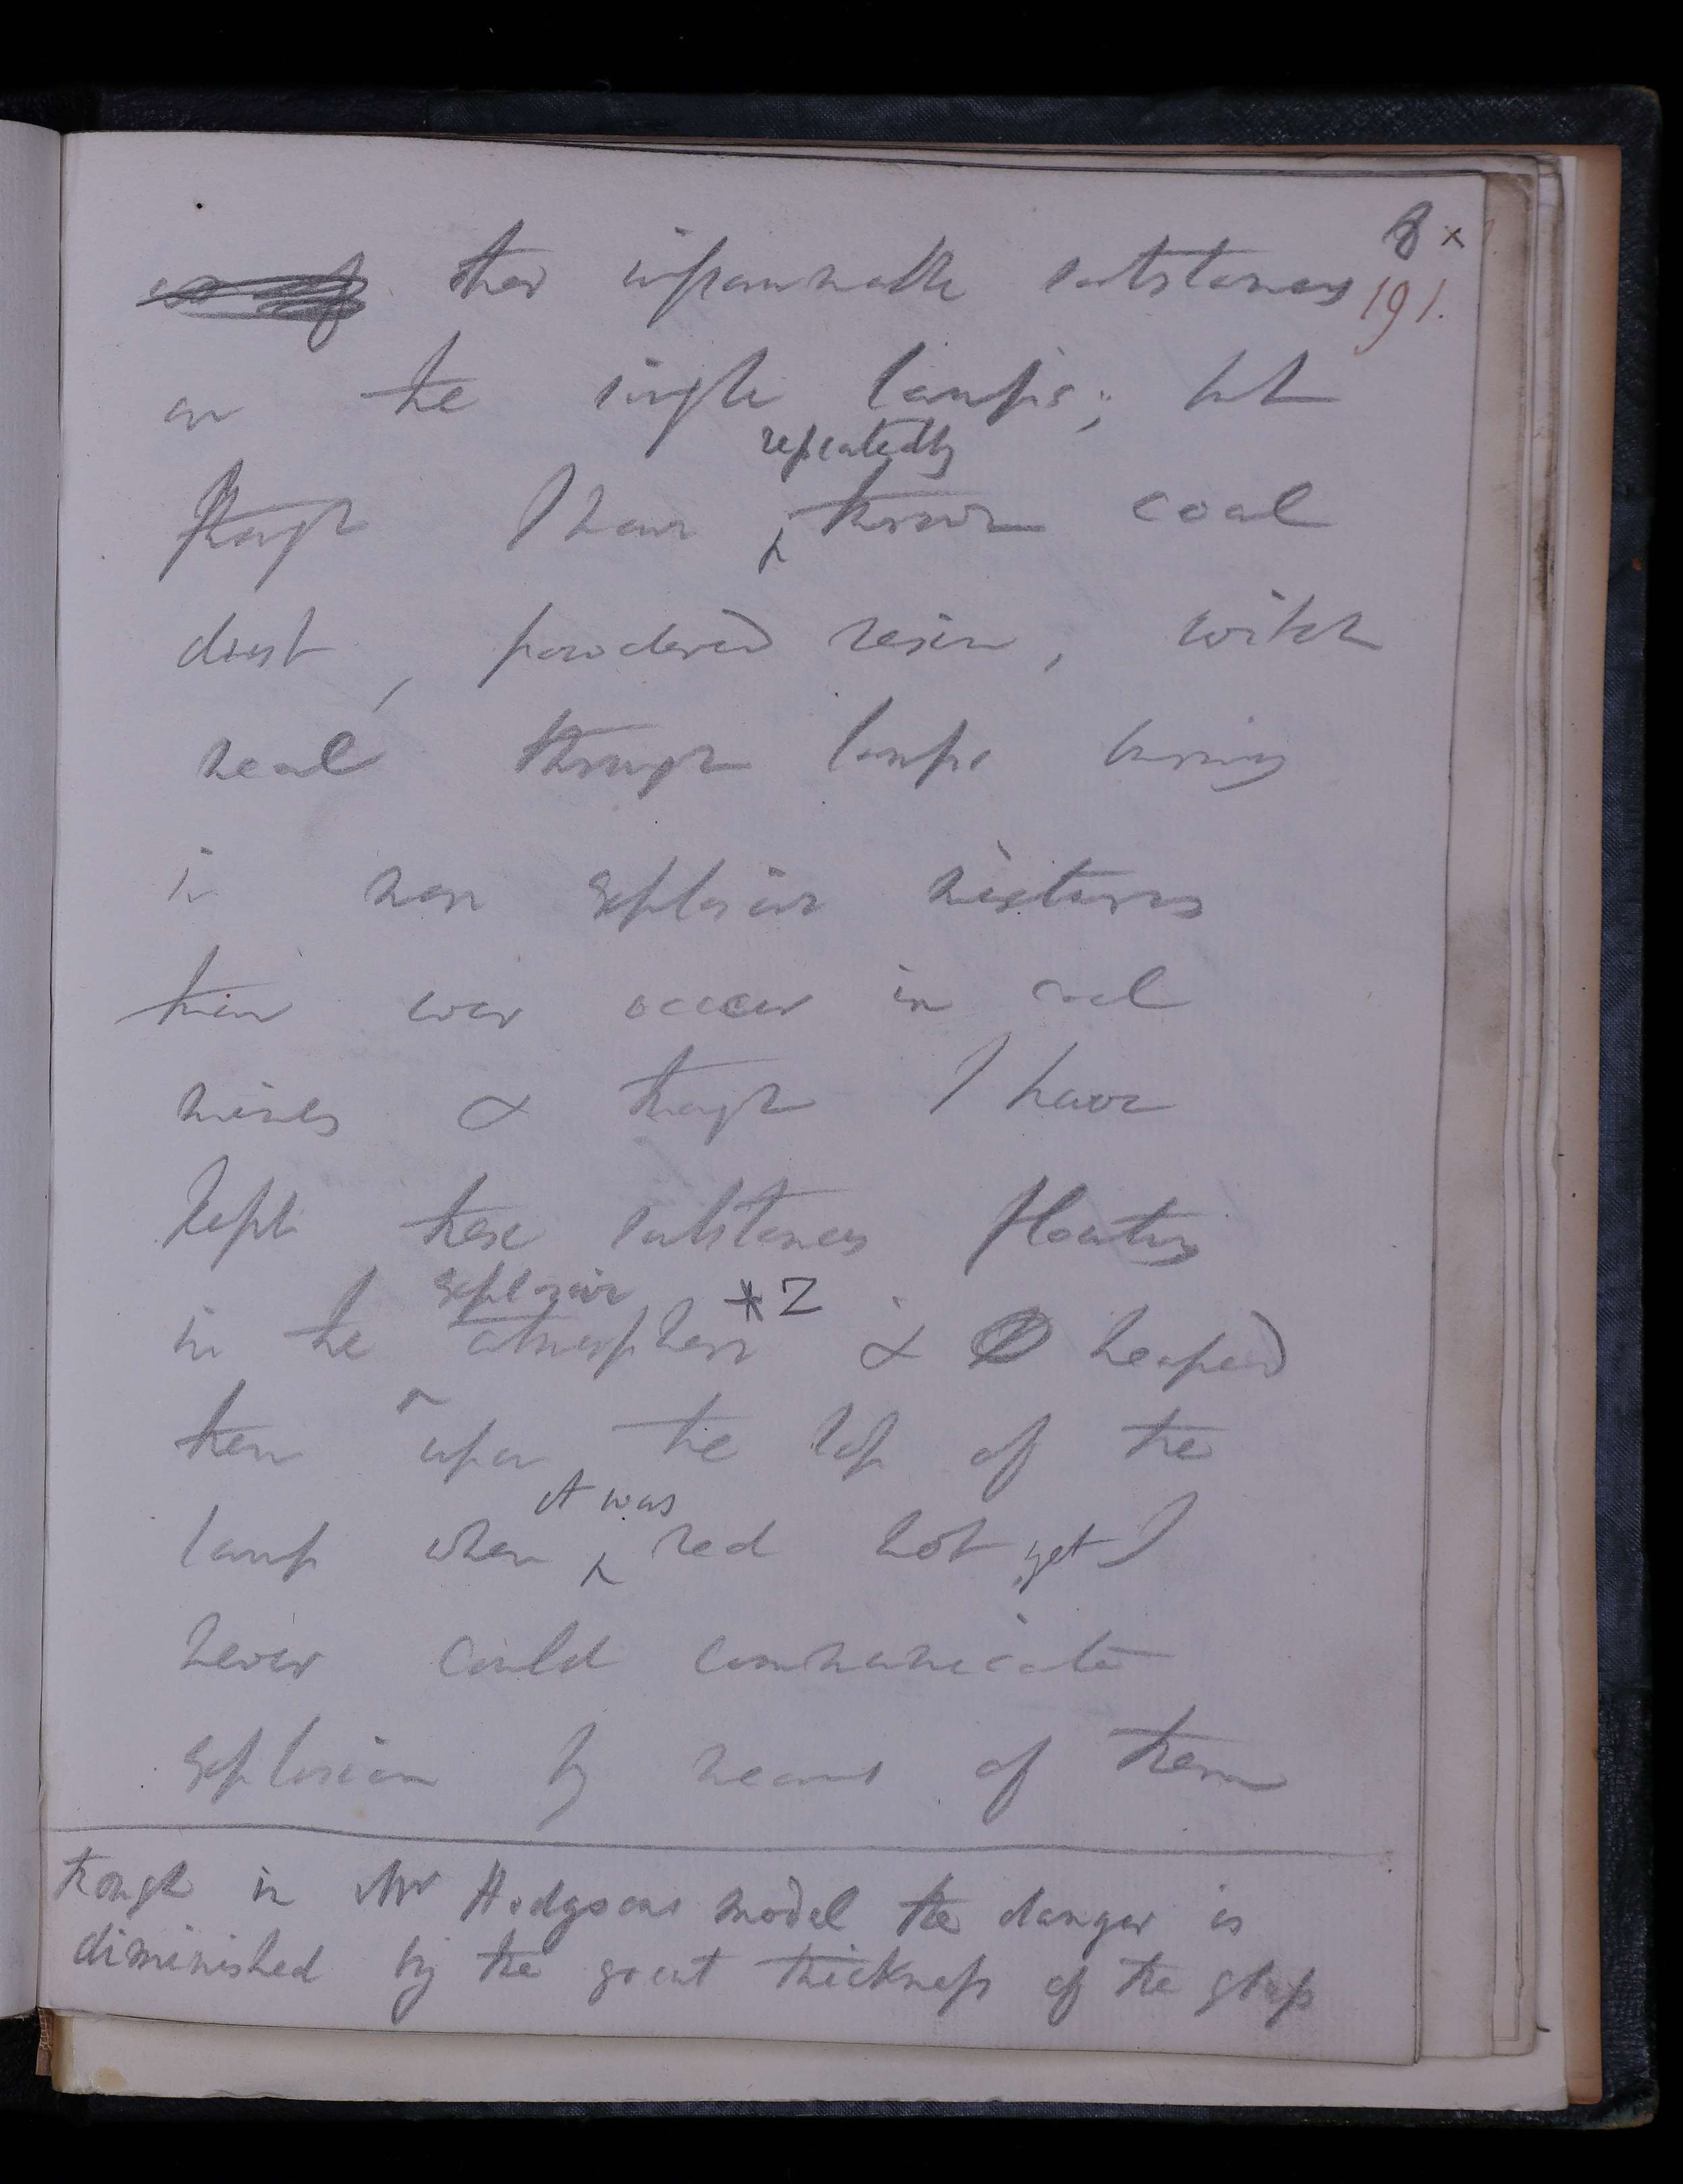 8 ×
other inflammable substances 191.
on the single lamps; but
though I have repeatedly thrown coal
dust, powdered resin, witch
meal through lamps burning
in more explosive mixtures
than ever occur in coal
mines & though I have
kept these substances floating
in the explosive atmosphere *2 & heaped
them upon the top of the
lamp when it was red hot, yet I
never could communicate
explosion by means of them
though in Mr Hodgsons model the danger is
diminished by the great thickness of the glass